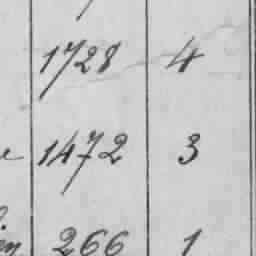 1728 4
1472 3
266 1